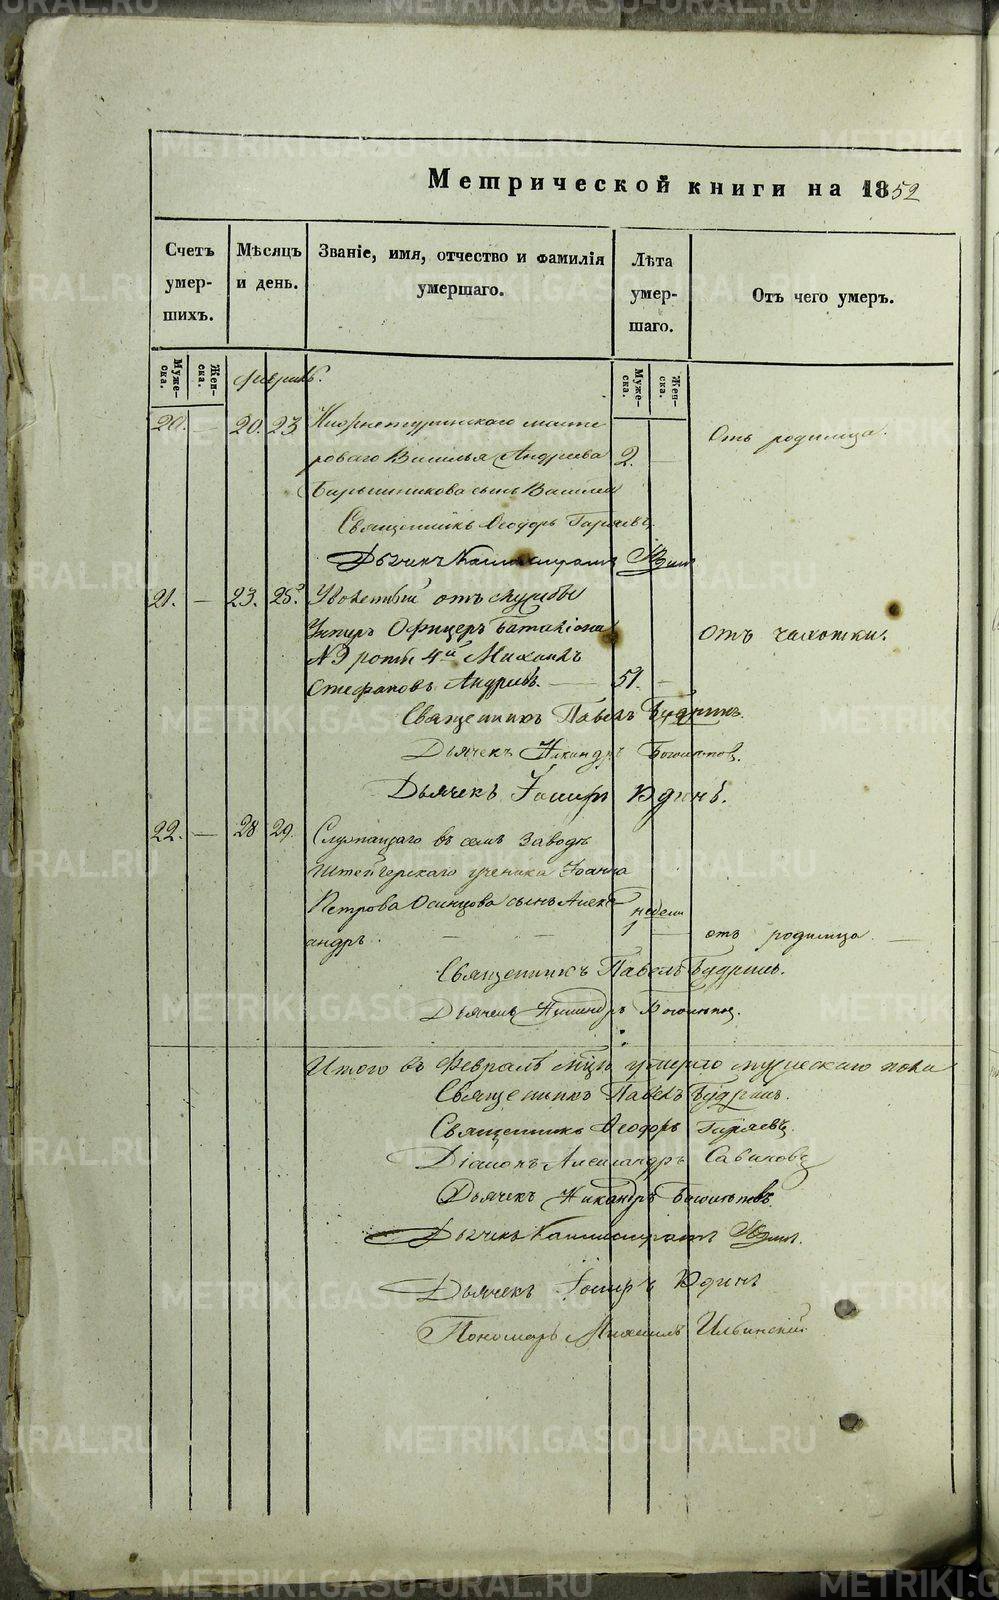 Метрической книги на 1852
Счетъ умер-шихъ.
Мѣсяцъ и день.
Званіе, имя, отчество и фамилія умершаго.
Лѣта умер-шаго.
Отъ чего умеръ.
Муже-ска.
Жен-ска.
Муже-ска.
Жен-ска.
Февраль.
20. — 20. 23 Нижнетуринскаго масте
роваго Василья Андреева 2. — Отъ родимца.
сынъ Василій
Священникъ Ѳеодоръ
Дьячекъ Юдинъ
21. — 23. 25. Уволеный отъ службы
Унтеръ Офицеръ Баталіона
№ 9 роты 4й Михаилъ отъ чахотки.
Стефановъ Андреевъ. — 51. —
Священникъ Павелъ Будринъ.
Дьячекъ Никандръ
Дьячекъ Юдинъ.
22. — 28 29. Служащаго въ семъ заводѣ
штейгерскаго ученика Іоанна
Петрова Осинцова сынъ Алекс
андръ. — — недели 1 — отъ родимца —
Священникъ Павелъ Будринъ.
Дьячекъ Никандръ
Итого въ Февралѣ мцѣ умерло мужескаго пола
Священникъ Павелъ Будринъ.
Священникъ Ѳеодоръ
Діаконъ Александръ Савиновъ
Дьячекъ Никандръ
Дьячекъ Юдинъ.
Дьячекъ Юдинъ
Пономарь Михаилъ Ильинскій
METRIKI.GASO-URAL.RU